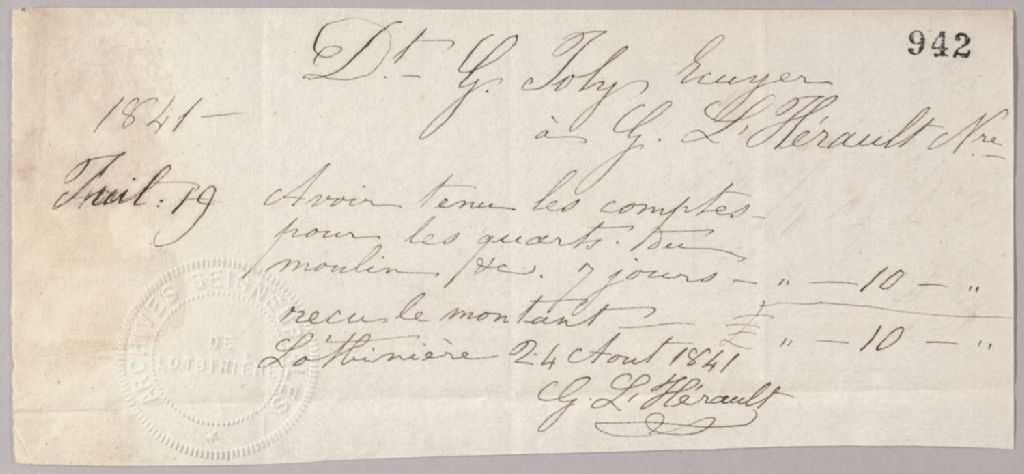 942
Dt. G. Joly Ecuyer
1841 — à G. L'Hérault Nre
Juil: 19 Avoir tenu les comptes
pour les quarts. du
moulin &c. 7 jours — " — 10 — "
recu le montant — £ " — 10 — "
Lotbinière 24 Aout 1841
G. L'Hérault
ARCHIVES SEIGNEURIALES
DE
LOTBINIERE